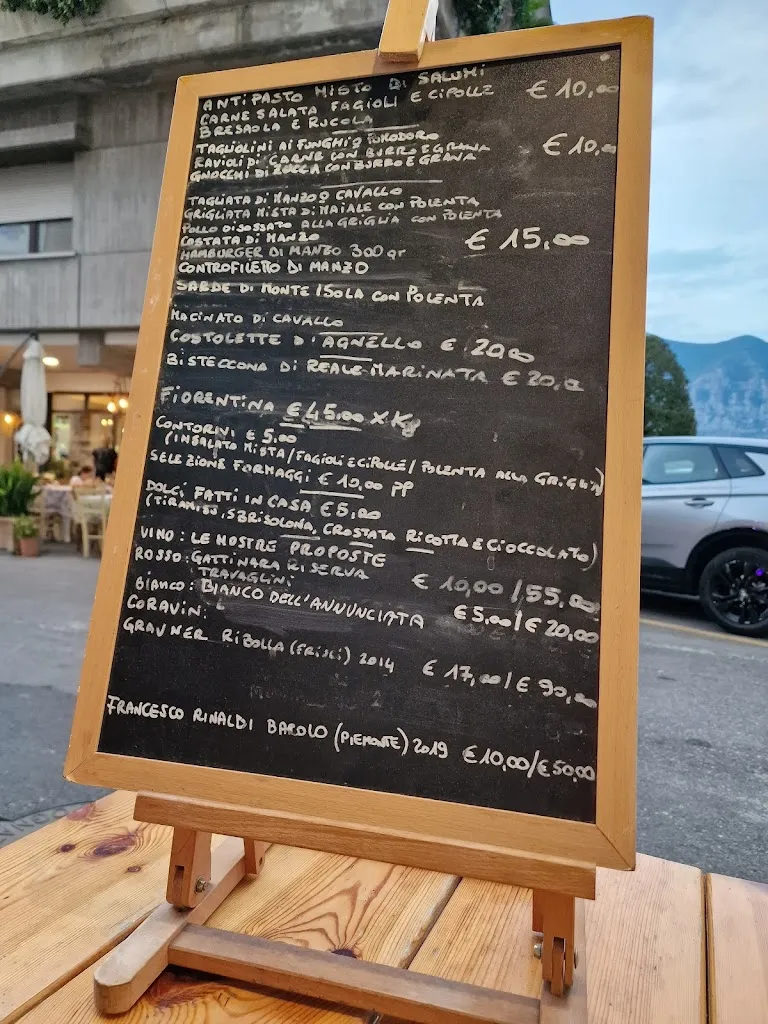 ANTIPASTO MISTO DI SALUMI
CARNE SALATA FAGIOLI E CIPOLLE € 10,00
BRESAOLA E RUCOLA
TAGLIOLINI AI FUNGHI O POMODORO
RAVIOLI DI CARNE CON BURRO E GRANA € 10,00
GNOCCHI DI ZUCCA CON BURRO E GRANA
TAGLIATA DI MANZO O CAVALLO
GRIGLIATA MISTA DI MAIALE CON POLENTA
POLLO DISOSSATO ALLA GRIGLIA CON POLENTA
COSTATA DI MANZO € 15,00
HAMBURGER DI MANZO 300 gr
CONTROFILETTO DI MANZO
SARDE DI MONTE ISOLA CON POLENTA
MACINATO DI CAVALLO
COSTOLETTE D'AGNELLO € 20,00
BISTECCONA DI REALE MARINATA € 20,00
FIORENTINA € 45,00 X Kg
CONTORNI € 5,00
(INSALATA MISTA/FAGIOLI E CIPOLLE/POLENTA ALLA GRIGLIA)
SELEZIONE FORMAGGI € 10,00 PP
DOLCI FATTI IN CASA € 5,00
(TIRAMISÙ, SBRISOLONA, CROSTATA RICOTTA E CIOCCOLATO)
VINO: LE NOSTRE PROPOSTE
ROSSO: GATTINARA RISERVA
TRAVAGLINI € 10,00/55,00
BIANCO: BIANCO DELL'ANNUNCIATA € 5,00/€ 20,00
CORAVIN:
GRAVNER RIBOLLA (FRIULI) 2014 € 17,00/€ 90,00
FRANCESCO RINALDI BAROLO (PIEMONTE) 2019 € 10,00/€ 50,00